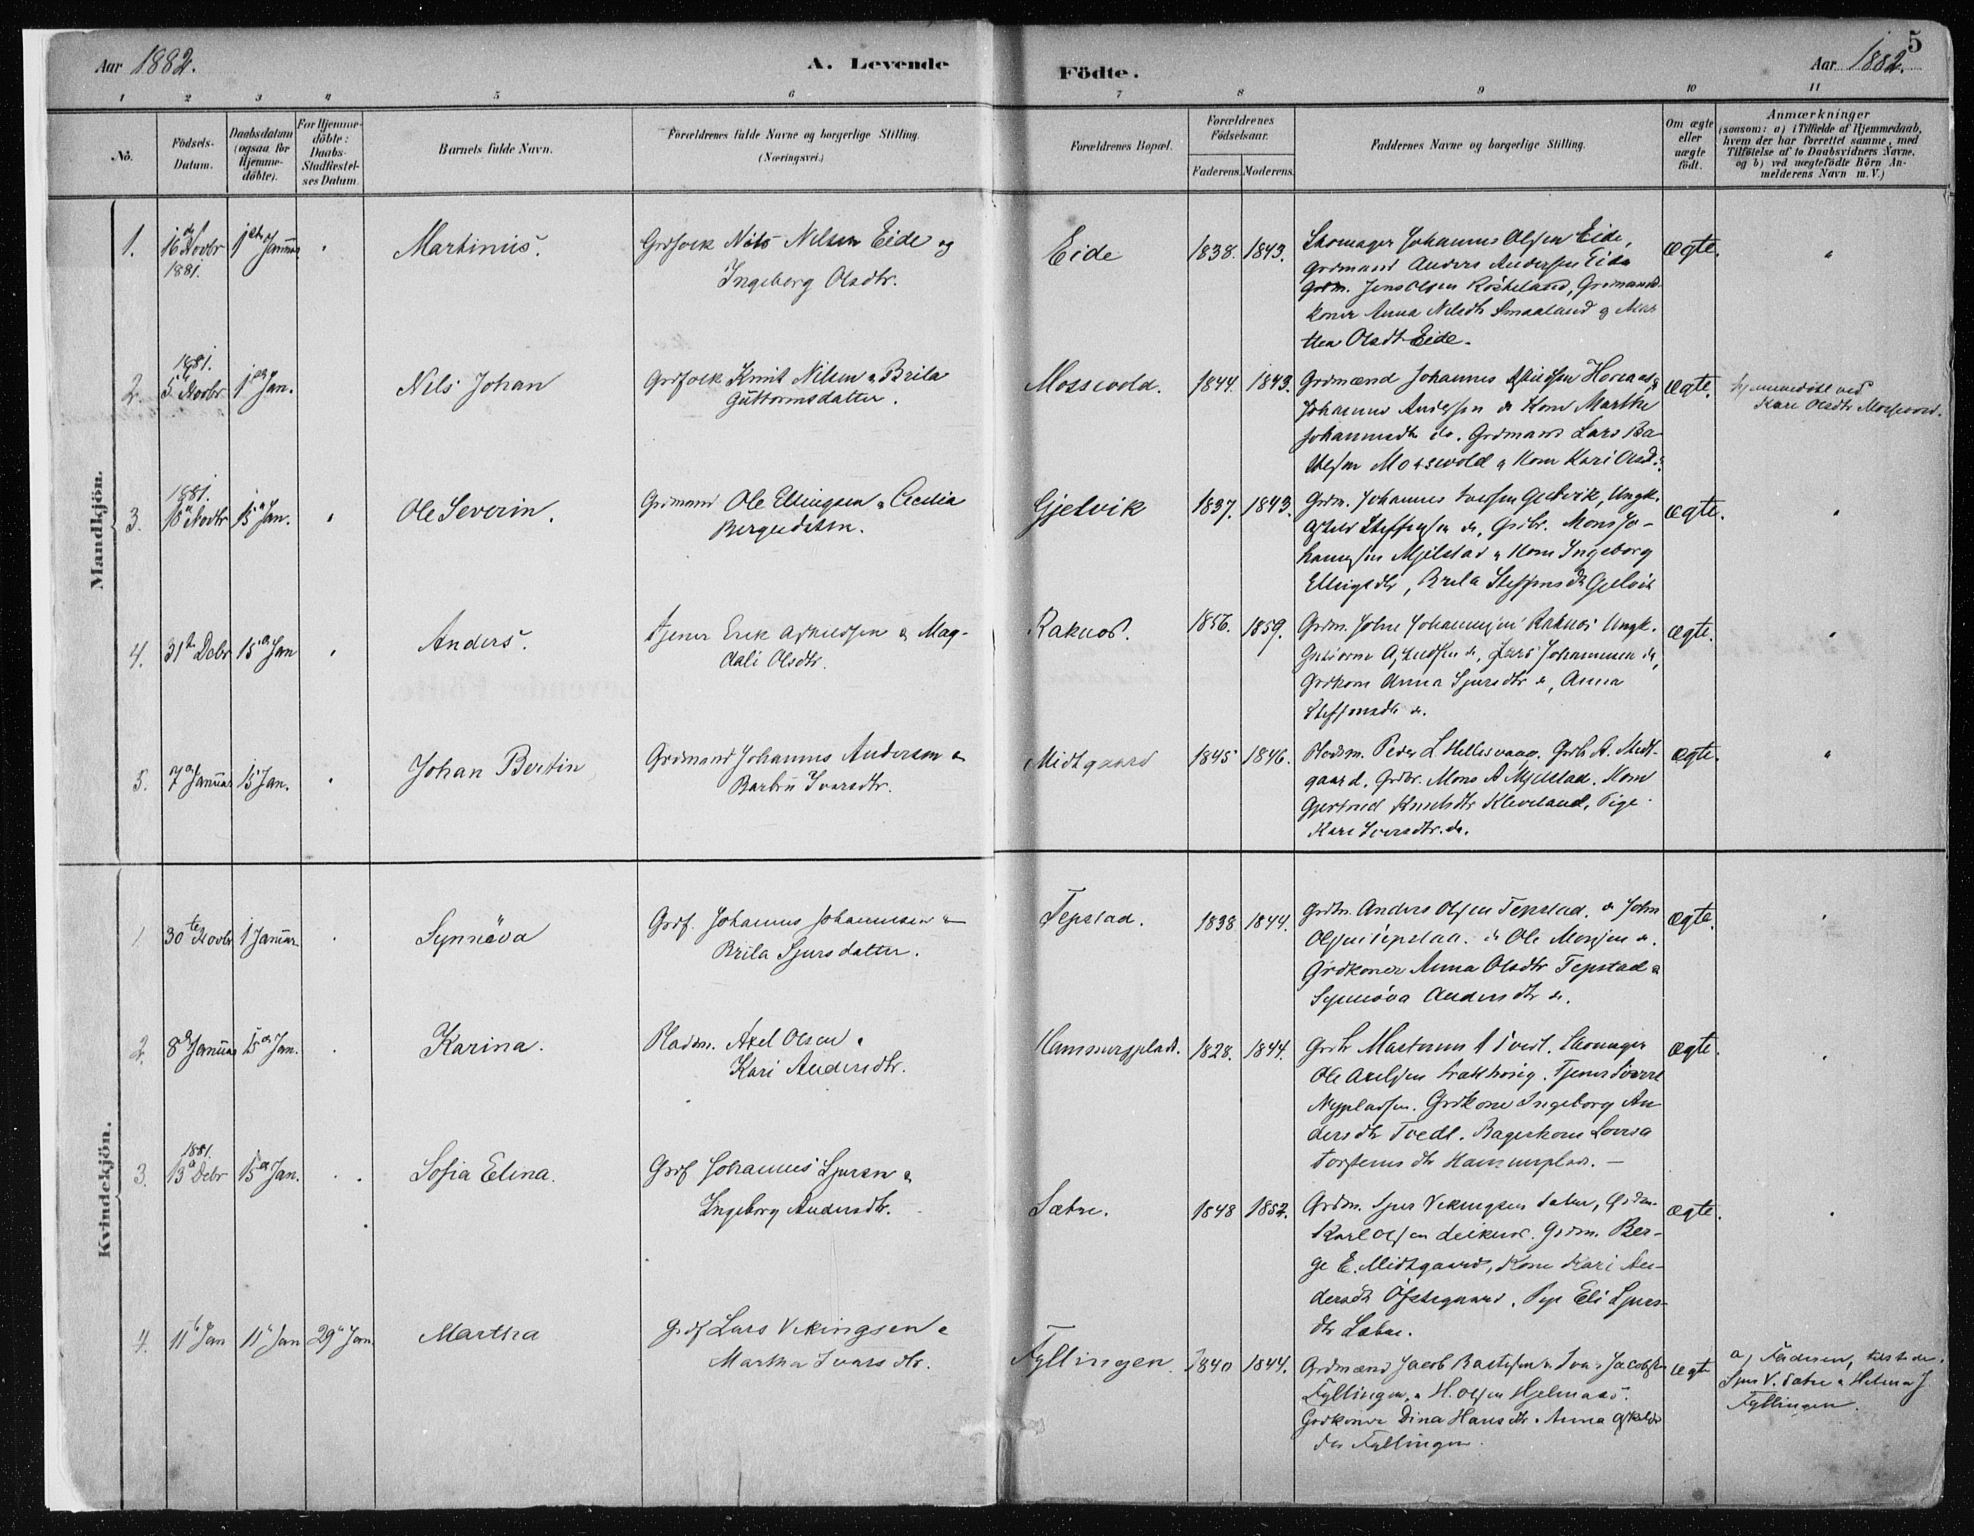 Aar 1882. A. Levende Födte. Aar 1882. 5
1 2 3 4 5 6 7 8 9 10 11
No.
Födsels-
Datum.
Daabsdatum
(ogsaa for
Hjemme-
döbte).
For Hjemme-
döbte:
Daabs-
Stadfæstel-
ses Datum.
Barnets fulde Navn.
Forældrenes fulde Navne og borgerlige Stilling.
(Næringsvei.)
Forældrenes Bopæl.
Forældrenes
Födselsaar.
Faderens. Moderens.
Faddernes Navne og borgerlige Stilling.
Om ægte
eller
uægte
födt.
Anmærkninger
(saasom: a) i Tilfælde af Hjemmedaab,
hvem der har forrettet samme, med
Tilföielse af to Daabsvidners Navne,
og b) ved uægtefödte Börn An-
melderens Navn m. V.)
Mandkjön.
1. 16 Novbr 1881. 1 Januar Martinus. Grdfolk Nils Nilsen Eide og
Ingeborg Olsdtr.
Eide 1838. 1843. Skomager Johannes Olsen Eide,
Grdmand Anders Andersen Eide
Grdm. Jens Olsen Röskeland, Grdmands
koner Anna Nilsdtr Smaaland og Mar
tha Olsdtr Eide.
ægte.
2. 1881. 5 Novbr 1 Jan. Nils Johan Grdfolk Knut Nilsen & Brita
Guttormsdatter.
Mossevold. 1844. 1843. Grdmænd Johannes
Johannes Andersen do Kone Marthe
Johannesdtr do. Grdmand Lars Ba
Mossevold & Kone Kari Olsd.
ægte. hjemmedöbt ved
Kari Olsdtr Mossevold.
3. 1881. 18 Novbr 15 Jan. Ole Severin. Grdmand Ole Ellingsen & Cecilia
Bergesdatter.
Gjelvik 1837. 1843. Grdm. Johannes Iversen Gjelvik, Ungk.
Steffensen do, Grdbr. Mons Jo-
hannesen Mjelstad & Kone Ingeborg
Ellingsdtr, Brita Steffensdtr Gjelvik
ægte.
4. 31 Debr 15 Jan Anders. Tjener Erik Askildsen & Mag-
dali Olsdtr.
Raknes. 1856. 1859. Grdm. Johne Johannesen Raknes Ungk.
Guttorm Askildsen do, Lars Johannesen do,
Grdkone Anna Sjursdtr do, Anna
Steffensdtr do.
ægte.
5. 7 Januar 15 Jan. Johan Bertin Grdmand Johannes Andersen &
Barbru Ivarsdtr.
Midtgaard 1845 1846. Pladsm. Peder L Hellesvaag. Grdb A. Midt-
gaard. Grdbr. Mons A Mjelstad. Kone
Gjertrud Knutsdtr Kleveland, Pige
Kari Iversdtr. do.
ægte.
Kvindekjön.
1. 30 Novbr 1 Januar. Synnöva Grdf. Johannes Johannesen &
Brita Sjursdatter.
Tepstad. 1838 1844. Grdbr. Anders Olsen Tepstad. do John
Olsen Tepstad. do Ole Monsen do.
Grdkoner Anna Olsdtr Tepstad &
Synnöva Andersdtr do.
ægte.
2. 8 Januar 15 Jan. Karina. Pladsm. Axel Olsen &
Kari Andersdtr.
Hammersplads. 1828. 1844. Grdbr Mastrum A Tvedt. Skomager
Ole Axelsen Tjener Sivert
Nypladsen. Grdkone Ingeborg An
dersdtr Tvedt. Bagerkone Lovisa
Torstensdtr Hammersplads. —
ægte.
3. 1881. 13 Debr 15 Jan. Sofia Elina. Grdf Johannes Sjursen &
Ingeborg Andersdtr.
Sætre. 1848 1852. Grdm. Sjur Vikingsen Sætre, Grdm.
Karl Olsen Leiknes. Grdm. Ber-
ge E. Midtgaard, Kone Kari An-
dersdtr Öfstegaard. Pige Eli Sjurs-
dtr Sætre.
ægte.
4. 11 Jan 11 Jan 29 Jan. Martha Grdf Lars Vikingsen &
Martha Ivarsdtr.
Fyllingen 1840 1844. Grdmænd Jacob Jacobsen
Fyllingen, & H. Olsen Hjelmaas.
Grdkoner Dina Hansdtr & Anna
Fyllingen.
ægte a) Faderen, tilstede
Sjur V. Sætre & Helma J.
Fyllingen.